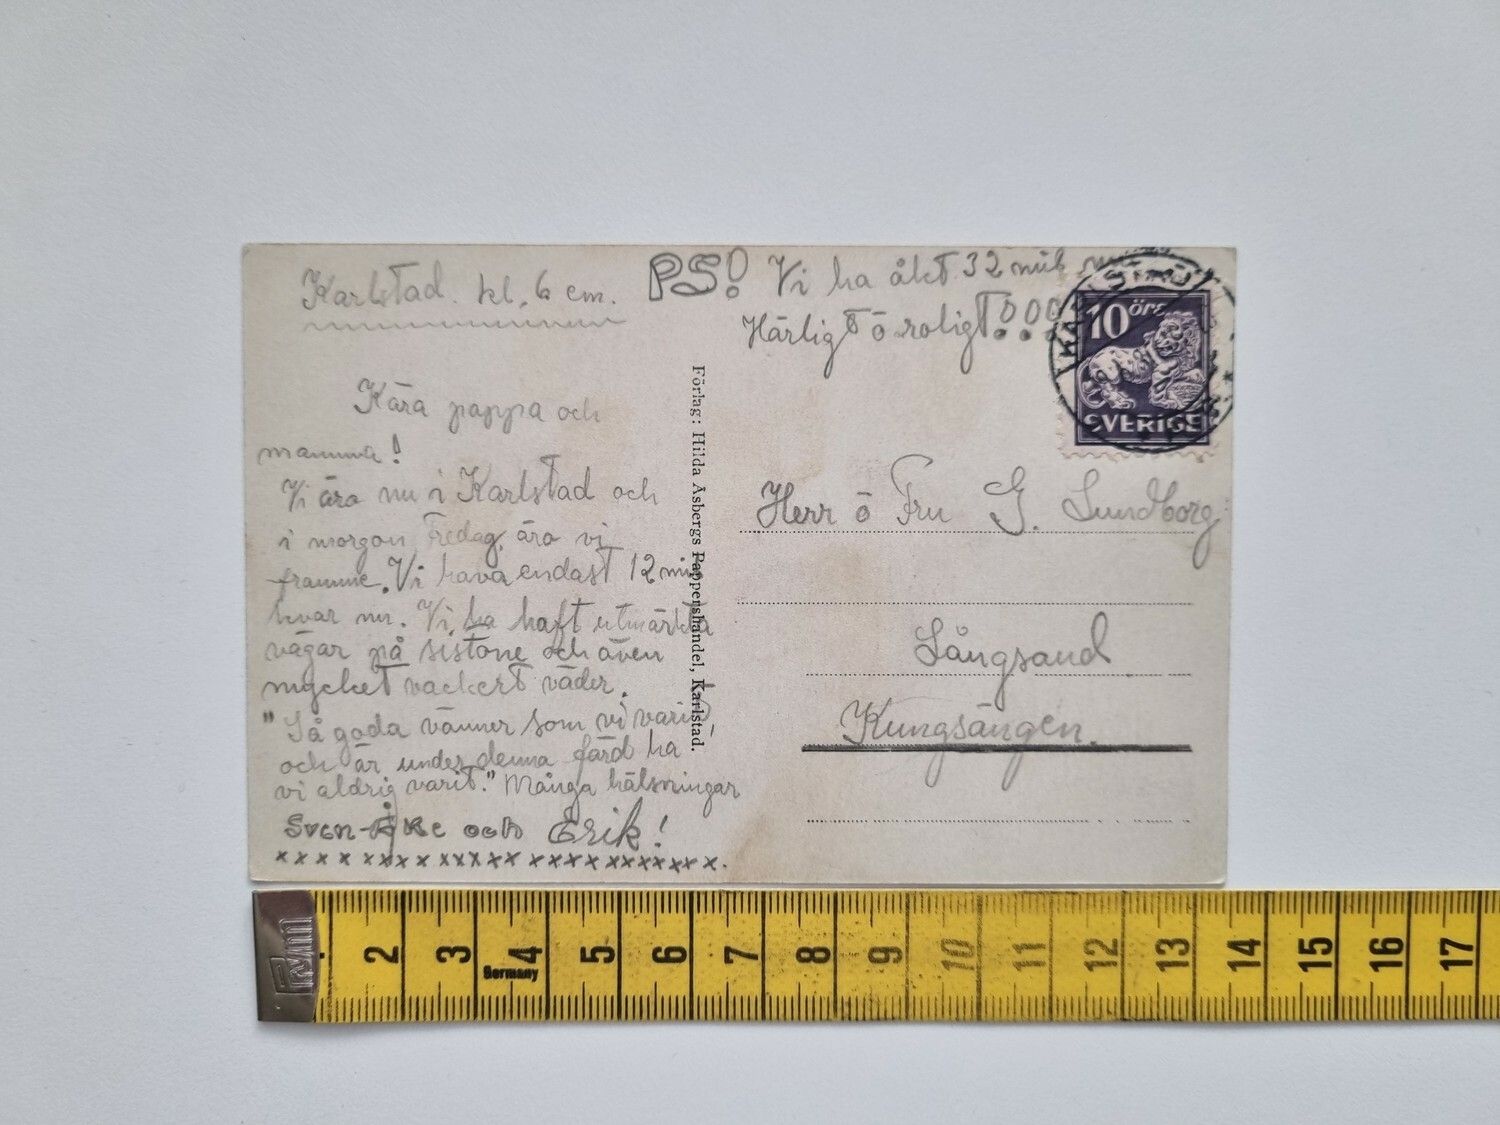 Karlstad. kl. 6 em.
PS! Vi ha åkt 32 mil nu
Härligt ö roligt!!!
10 öre
SVERIGE
Kära pappa och
mamma!
Vi äro nu i Karlstad och
i morgon Fredag, äro vi
framme. Vi hava endast 12 mil
kvar nu. Vi ha haft utmärkta
vägar på sistone och även
mycket vackert väder.
"Så goda vänner som vi varit
och är under denna färd ha
vi aldrig varit." Många hälsningar
Sven-Åke och Erik!
x x x x x x x x x x x x x x x x x x x x x x x x x.
Förlag: Hilda Åsbergs Pappershandel, Karlstad.
Herr ö Fru G. Lundborg
Långsand
Kungsängen.
2 3 4 5 6 7 8 9 10 11 12 13 14 15 16 17
Germany